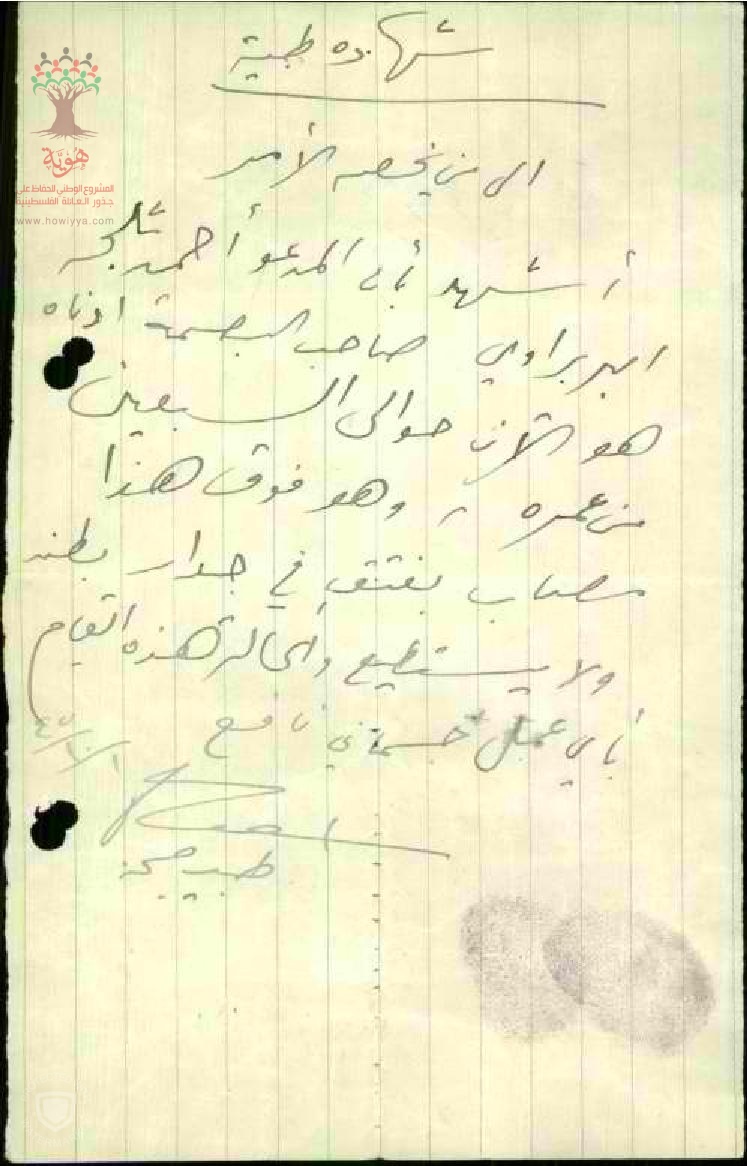 شهاده طبية
الى من يخصه الأمر
أشهد بأن المدعو أحمد
البربراوي صاحب البصمة ادناه
هو الآن حوالى السبعين
من عمره، وهو فوق هذا
مصاب بفتق في جدار بطنه
ولا يستطيع والحالة هذه القيام
بأي عمل جسماني نافع
طبيب صحة
هُوِيَّة
المشروع الوطني للحفاظ على
جذور العائلة الفلسطينية
www.howiyya.com